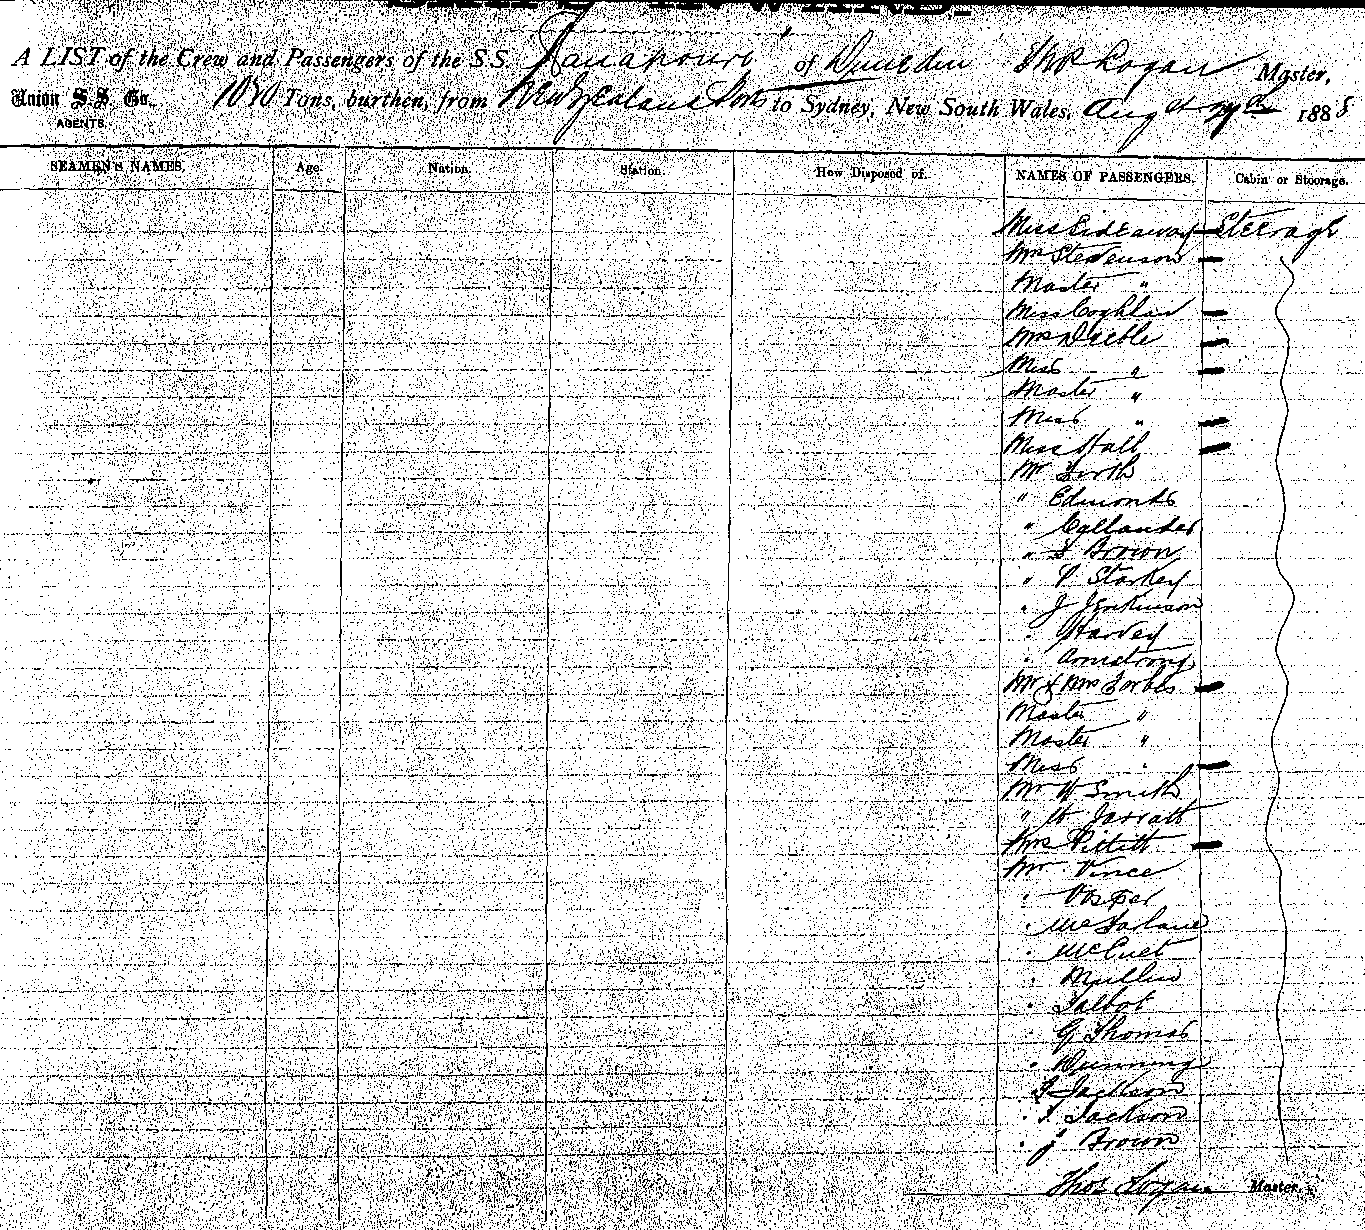 A LIST of the Crew and Passengers of the S.S. "Manapouri" of Dunedin Logan Master,
Union S.S. Co. 1020 Tons, burthen, from New Zealand Ports to Sydney, New South Wales, Augst 1888
AGENTS.
SEAMEN'S NAMES. Age. Nation. Station. How Disposed of. NAMES OF PASSENGERS. Cabin or Steerage.
Miss Steerage
Mrs Stevenson
Master "
Miss Coghlan
Mrs
Miss "
Master "
Miss "
Miss Hall
Mr
" Edmonds
" Callander
" Brown
" Starkey
" J Jenkinson
" Harvey
" Armstrong
Mr & Mrs Forbes
Master "
Master "
Miss "
Mr W Smith
" W Jarratt
Mrs
Mr Vince
" Vosper
" McFarlane
"
" Mullin
" Talbot
" G Thomas
" Dunning
Jackson
" Jackson
" J Brown
Thos Logan Master.